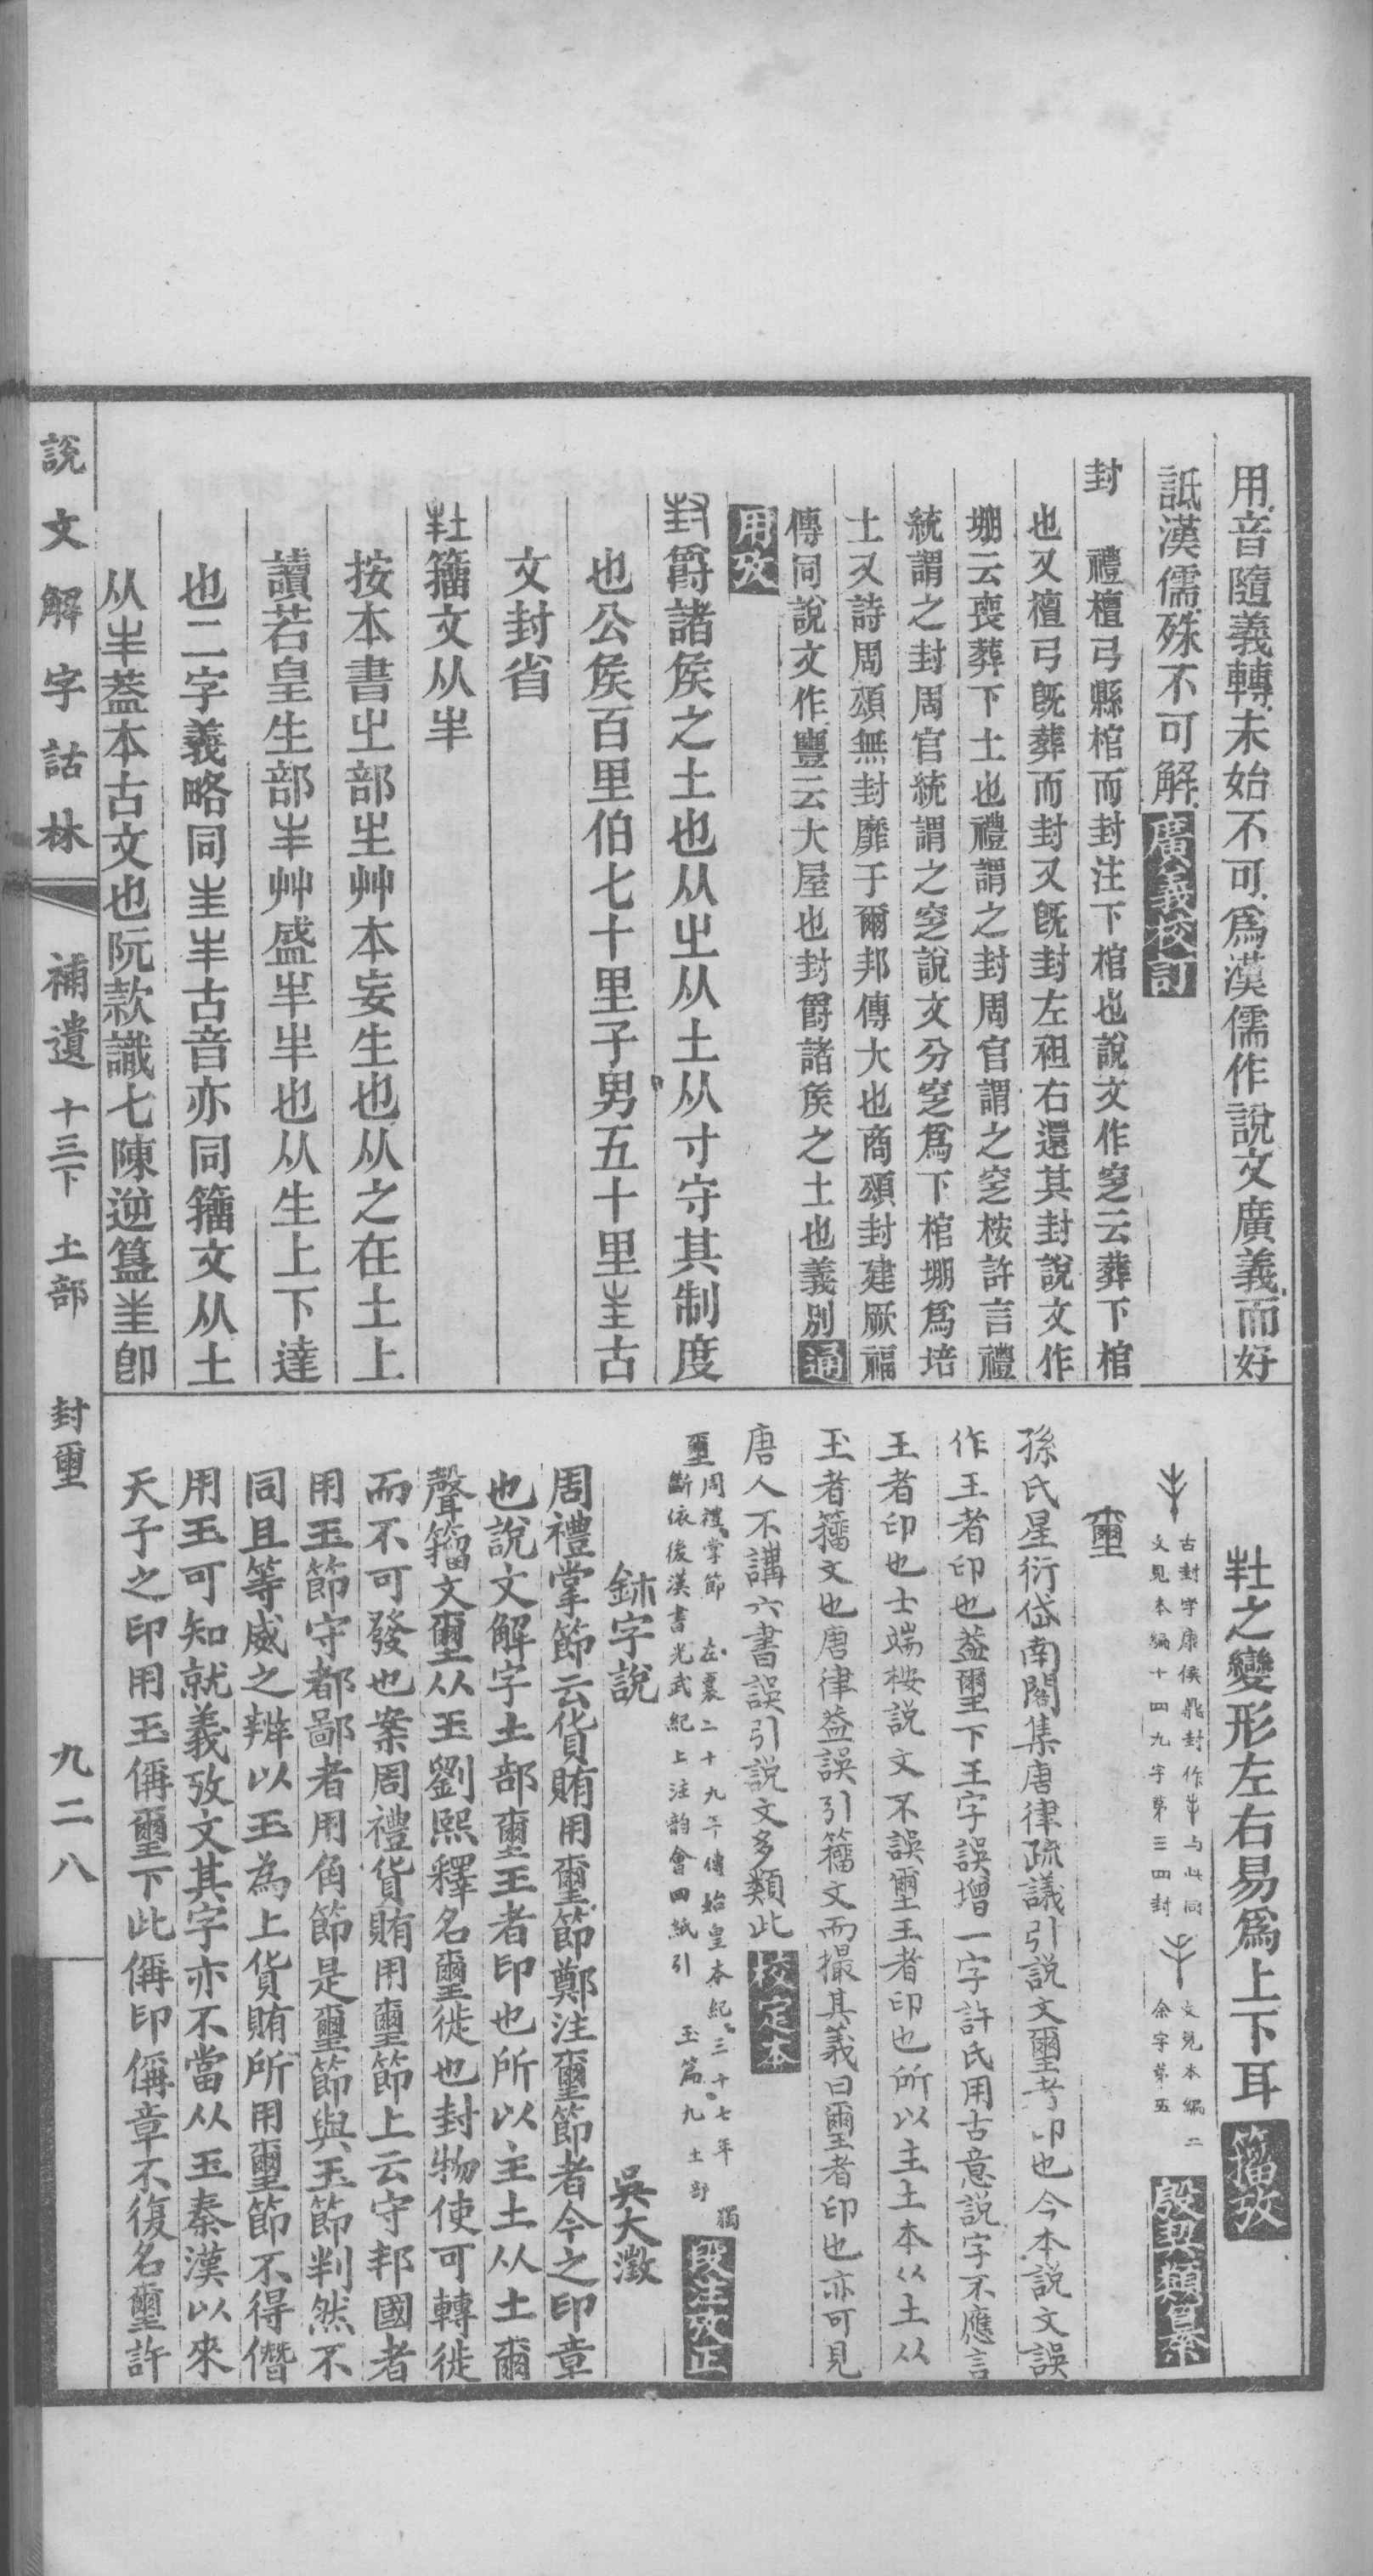 用音隨義轉未始不可爲漢儒作說文廣義而好
詆漢儒殊不可解廣義校訂
封　禮檀弓縣棺而封注下棺也說文作窆云葬下棺
也又檀弓旣葬而封又旣封左袒右還其封說文作
堋云喪葬下土也禮謂之封周官謂之窆桉許言禮
統謂之封周官統謂之窆說文分窆爲下棺堋爲培
土又詩周頌無封靡于爾邦傳大也商頌封建厥福
傳同說文作豐云大屋也封爵諸矦之土也義別通
用攷
封爵諸矦之土也从㞢从土从寸守其制度
也公矦百里伯七十里子男五十里𡉚古
文封省
𡉘籒文从丰
按本書㞢部㞷艸木妄生也从之在土上
讀若皇生部丰艸盛丰丰也从生上下達
也二字義略同𡉚丰古音亦同籒文从土
从丰葢本古文也阮款識七陳逆簋𡉚卽
𡉘之變形左右易爲上下耳籒攷
古封字康侯鼎封作丰与此同
文見本編十四九字第三四封
文見本編二
余字第五
殷契類纂
壐
孫氏星衍岱南閣集唐律疏議引説文壐者印也今本説文誤
作王者印也葢壐下王字誤增一字許氏用古意説字不應言
王者印也士端桉説文不誤壐王者印也所以主土本从土从
玉者籒文也唐律葢誤引籒文而撮其義曰壐者印也亦可見
唐人不講六書誤引説文多類此校定本
壐周禮掌節　左襄二十九年傳始皇本紀三十七年　獨
斷依後漢書光武紀上注韵會四紙引　玉篇九土部
段注攷正
鉥字說　吳大澂
周禮掌節云貨賄用璽節鄭注璽節者今之印章
也說文解字土部壐王者印也所以主土从土爾
聲籒文璽从玉劉熙釋名璽徙也封物使可轉徙
而不可發也案周禮貨賄用璽節上云守邦國者
用玉節守都鄙者用角節是璽節與玉節判然不
同且等威之辨以玉為上貨賄所用璽節不得僭
用玉可知就義攷文其字亦不當从玉秦漢以來
天子之印用玉偁璽下此偁印偁章不復名璽許
說文解字詁林　補遺　十三下　土部　封壐　九二八